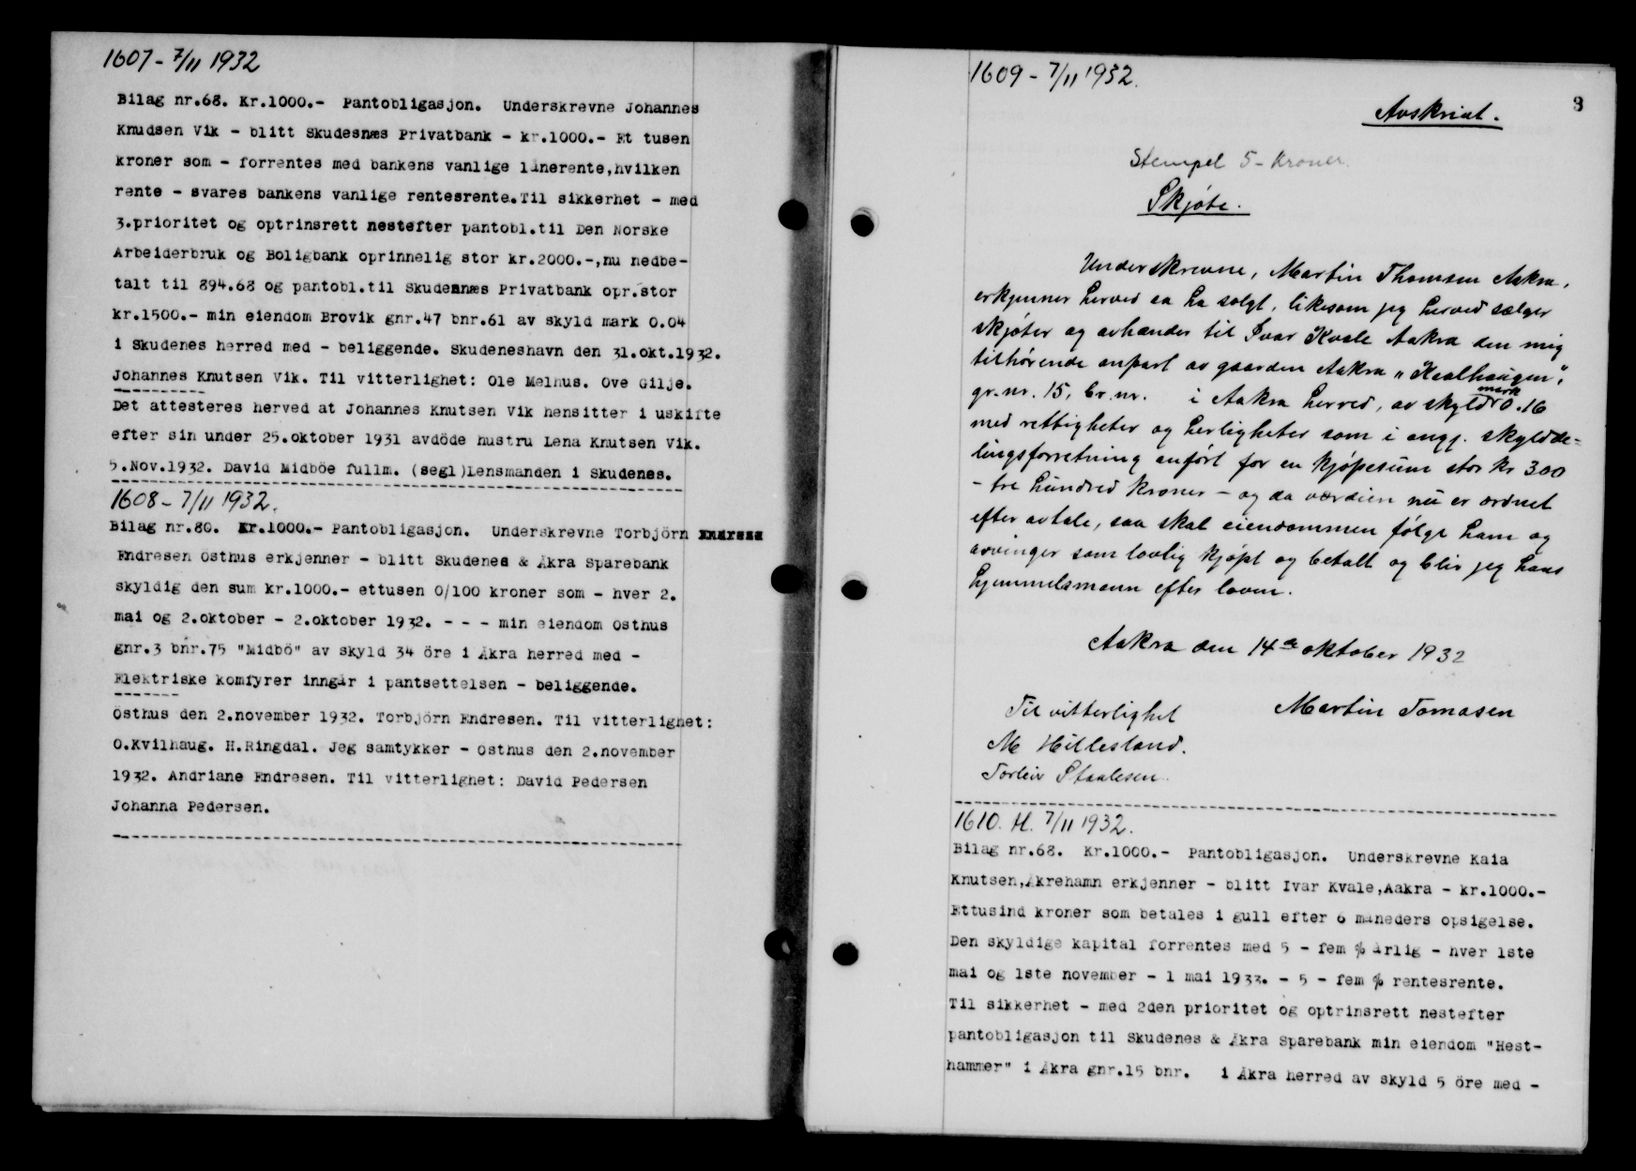 1607 - 7/11 1932
Bilag nr.68. Kr.1000.- Pantobligasjon. Underskrevne Johannes
Knudsen Vik - blitt Skudesnæs Privatbank - kr.1000.- Et tusen
kroner som - forrentes med bankens vanlige lånerente,hvilken
rente - svares bankens vanlige rentesrente.Til sikkerhet - med
3.prioritet og optrinsrett nestefter pantobl.til Den Norske
Arbeiderbruk og Boligbank oprinnelig stor kr.2000.-,nu nedbe-
talt til 894.68 og pantobl.til Skudesnæs Privatbank opr.stor
kr.1500.- min eiendom Brovik gnr.47 bnr.61 av skyld mark 0.04
i Skudenes herred med - beliggende. Skudeneshavn den 31.okt.1932.
Johannes Knutsen Vik. Til vitterlighet: Ole Melhus. Ove Gilje.
Det attesteres herved at Johannes Knutsen Vik hensitter i uskifte
efter sin under 25.oktober 1931 avdöde hustru Lena Knutsen Vik.
5.Nov.1932. David Midböe fullm. (segl)Lensmanden i Skudenes.
1608 - 7/11 1932.
Bilag nr.80. Kr.1000.- Pantobligasjon. Underskrevne Torbjörn
Endresen Östhus erkjenner - blitt Skudenes & Åkra Sparebank
skyldig den sum kr.1000.- ettusen 0/100 kroner som - hver 2.
mai og 2.oktober - 2.oktober 1932. - - - min eiendom Östhus
gnr.3 bnr.75 "Midbö" av skyld 34 öre i Åkra herred med -
Elektriske komfyrer inngår i pantsettelsen - beliggende.
Östhus den 2.november 1932. Torbjörn Endresen. Til vitterlighet:
O.Kvilhaug. H.Ringdal. Jeg samtykker - Östhus den 2.november
1932. Andriane Endresen. Til vitterlighet: David Pedersen
Johanna Pedersen.
1609 - 7/11 1932.
3
Avskrivt.
Stempel 5- Kroner.
Skjöte.
Underskrevne, Martin Thomsen Aakra,
erkjenner herved aa ha solgt, likesom jeg herved sælger
skjöter og avhænder til Ivar Kvale Aakra den mig
tilhörende anpart av gaarden Aakra "Kvalhaugen",
gr.nr. 15, br.nr. i Aakra herred, av skyld mark 0.16
med rettigheter og herligheter som i angj. skyldde=
lingsforretning anfört for en kjöpesum stor kr 300
- tre hundred kroner - og da værdien nu er ordnet
efter avtale, saa skal eiendommen fölge ham og
arvinger som lovlig kjöpt og betalt og blir jeg hans
hjemmelsmann efter loven.
Aakra den 14de oktober 1932
Til vitterlighet
Martin Tomasen
M Hillesland.
Torleiv Staalesen.
1610. H. 7/11 1932.
Bilag nr.68. Kr.1000.- Pantobligasjon. Underskrevne Kaia
Knutsen,Åkrehamn erkjenner - blitt Ivar Kvale,Aakra - kr.1000.-
Ettusind kroner som betales i gull efter 6 måneders opsigelse.
Den skyldige kapital forrentes med 5 - fem % årlig - hver 1ste
mai og 1ste november - 1 mai 1933. - 5 - fem % rentesrente.
Til sikkerhet - med 2den prioritet og optrinsrett nestefter
pantobligasjon til Skudenes & Åkra Sparebank min eiendom "Hest-
hammer" i Åkra gnr.15 bnr. i Åkra herred av skyld 5 öre med -